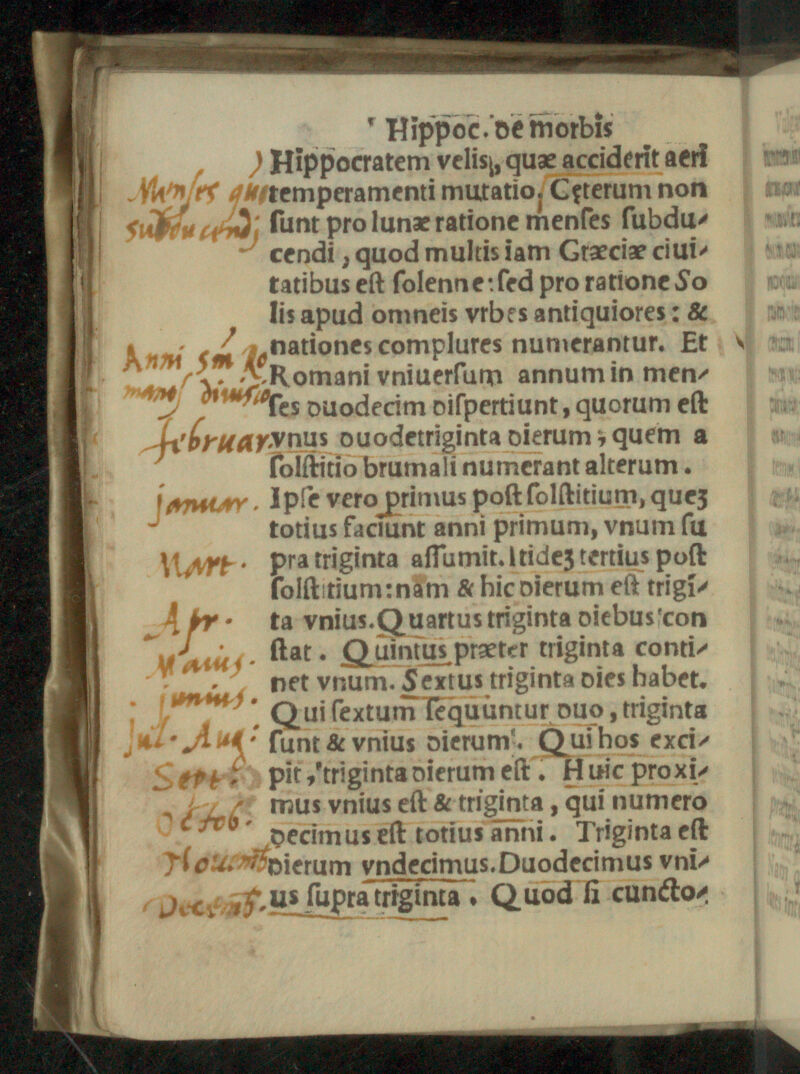 Hippoc. de morbis
) Hippocratem velis, quæ acciderit aeri
Menses
temperamenti mutatio. Cęterum non
subducendi
sunt pro lunæ ratione menses subdu-
cendi, quod multis iam Græciæ ciui-
tatibus est solenne: sed pro ratione So
lis apud omneis vrbes antiquiores: &
Anni
nationes complures numerantur. Et
Romani vniuersum annum in men-
diuisio
ses duodecim dispertiunt, quorum est
Februar.
vnus duodetriginta dierum; quem a
solstitio brumali numerant alterum.
januar.
Ipse vero primus post solstitium, queʒ
totius faciunt anni primum, vnum su
Mart.
pra triginta assumit. Itideʒ tertius post
solstitium: nam & hic dierum est trigī-
Apr.
ta vnius. Quartus triginta diebus con
Maius.
stat. Quintus præter triginta conti-
net vnum. Sextus triginta dies habet.
junius.
Qui sextum sequuntur duo, triginta
Jul. Aug.
sunt & vnius dierum. Qui hos exci-
Sept.
pit, triginta dierum est. Huic proxi-
Octob.
mus vnius est & triginta, qui numero
decimus est totius anni. Triginta est
Nouemb
dierum vndecimus. Duodecimus vni-
Decemb.
us supra triginta. Quod si cuncto-